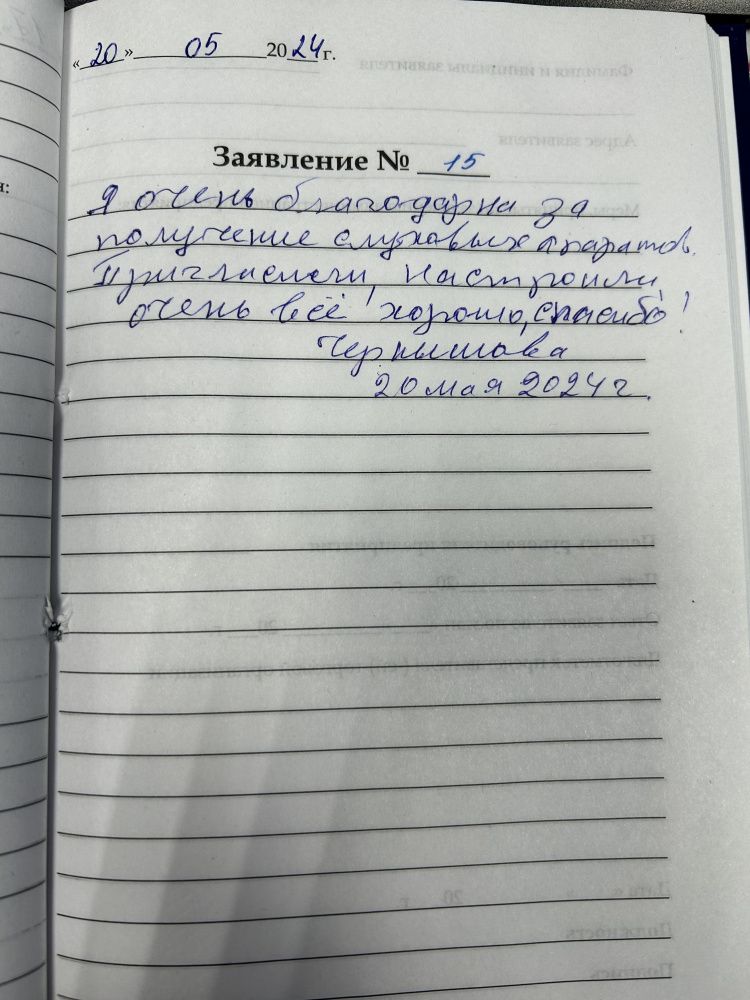 «20» 05 2024 г.
Заявление № 15
Я очень благодарна за
получение слуховых апаратов.
Пригласили, настроили,
очень всё хорошо, спасибо!
Чернышова
20 мая 2024 г.